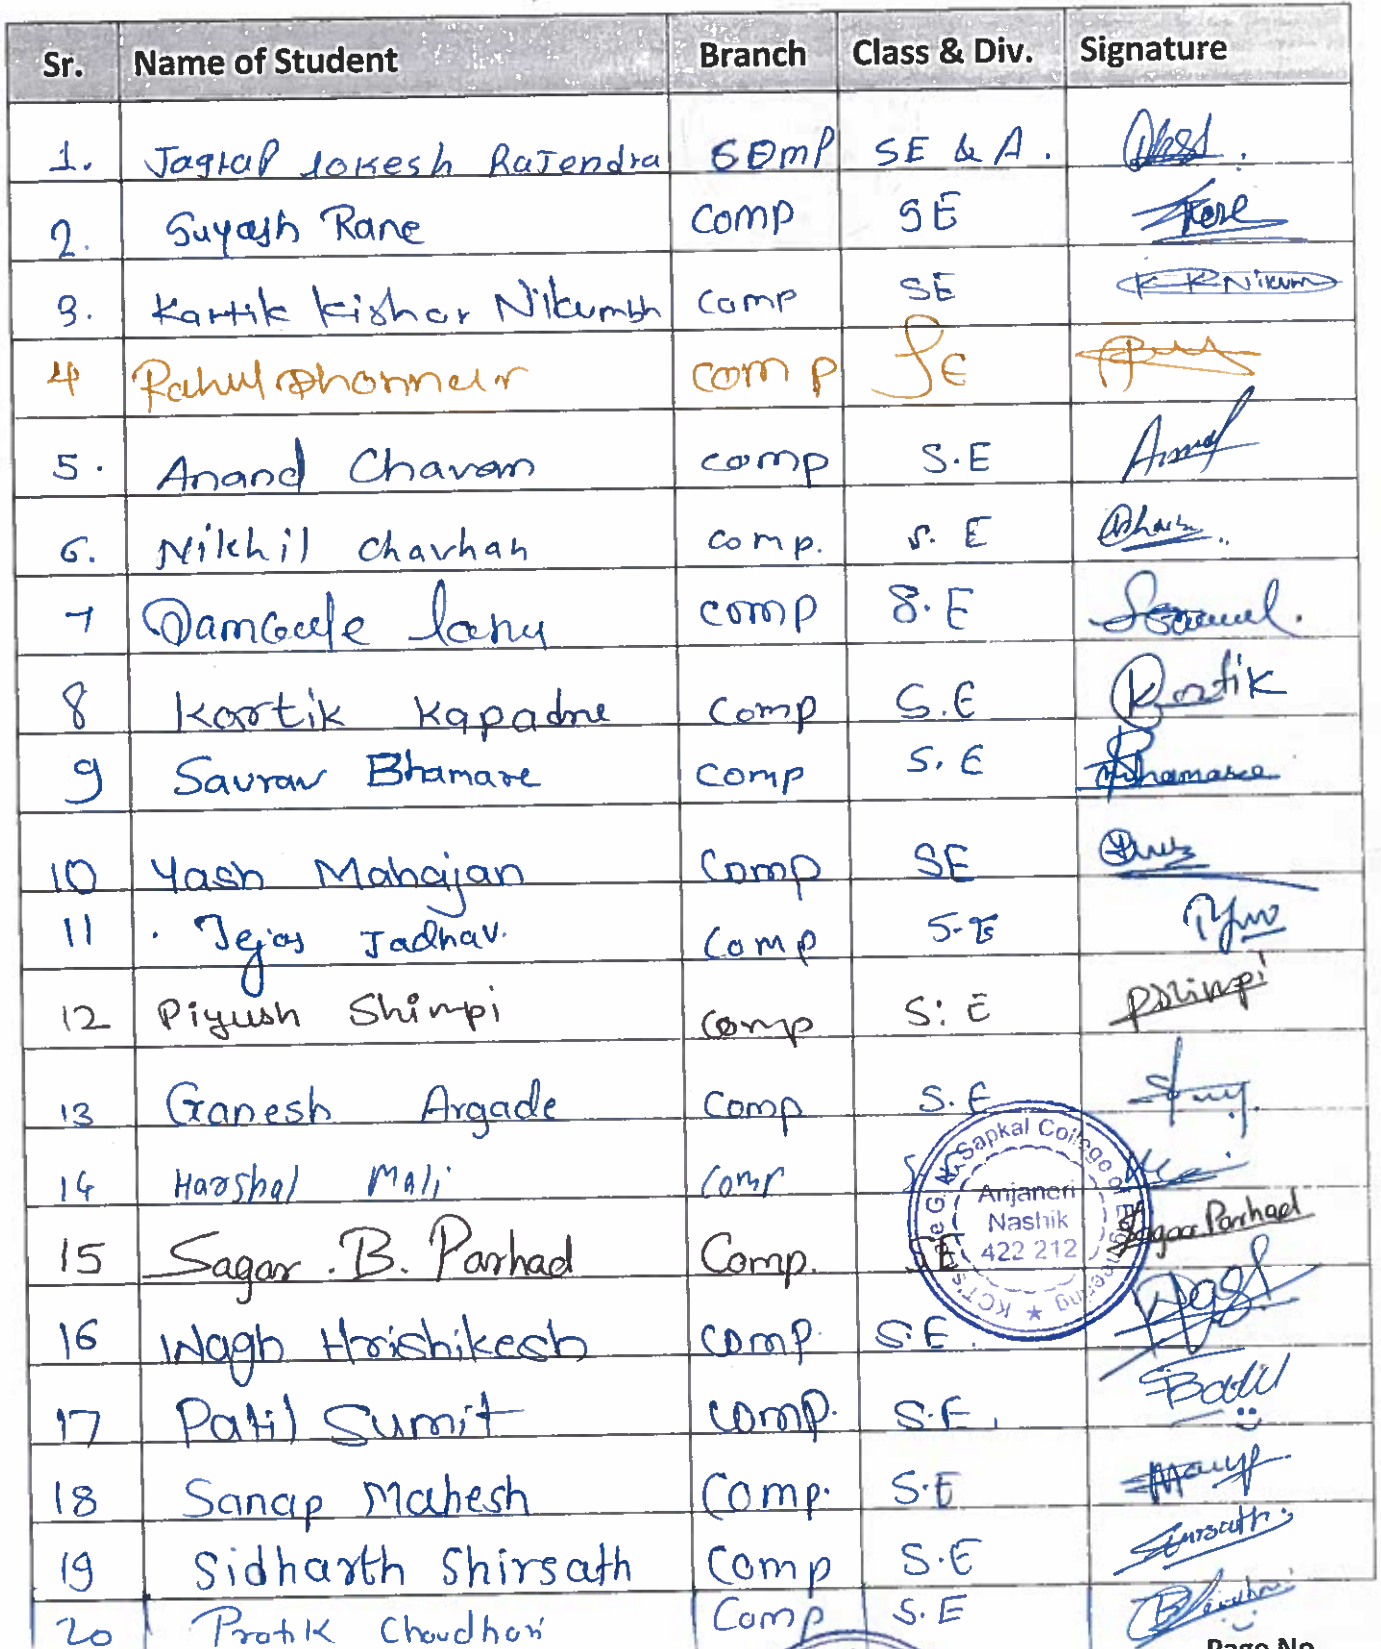 Sr. Name of Student Branch Class & Div. Signature
1. Jagtap lokesh Rajendra comp SE & A.
2. Suyash Rane comp SE
3. Kartik Kishor Nikumbh comp SE K K Nikum
4 Rahul comp SE
5. Anand Chavan comp S.E Anand
6. Nikhil Chavhan comp. S.E
7 comp S.E
8 Kartik Kapadne comp S.E Kartik
9 Saurav Bhamare comp S.E Bhamare
10 Yash Mahajan comp SE
11 Tejas Jadhav. comp S.E
12 Piyush Shimpi comp S.E PShimpi
13 Ganesh Argade comp S.E
14 Harshal Mali comp S
15 Sagar .B. Parhad Comp. SE Sagar Parhad
16 Wagh Hrishikesh comp. S.E.
17 Patil Sumit comp. S.E.
18 Sanap Mahesh comp. S.E
19 Sidharth Shirsath comp S.E Shirsath
20 Pratik Choudhari Comp S.E
KCT's Late G.N. Sapkal College of Engineering
Anjaneri
Nashik
422 212
Page No